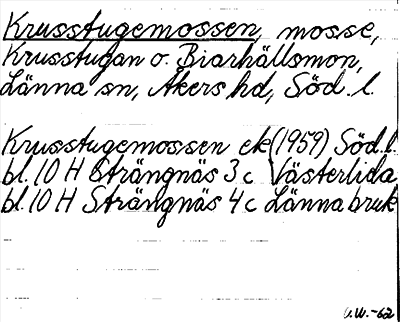 Krusstugemossen, mosse,
Krusstugan o. Biarhällsmon,
Länna sn, Åkers hd, Söd. l.
Krusstugemossen ek (1959) Söd. l.
bl. 10 H Strängnäs 3 c Västerlida
bl. 10 H Strängnäs 4 c Länna bruk
U.W.-62